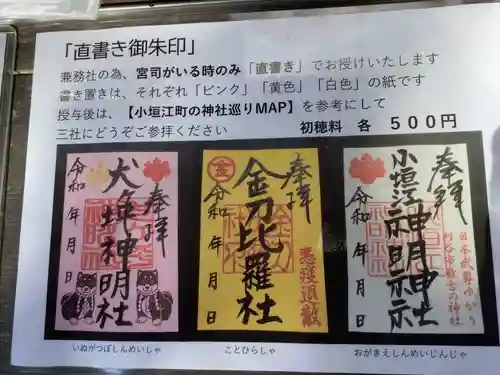 「直書き御朱印」
兼務社の為、宮司がいる時のみ「直書き」でお授けいたします
書き置きは、それぞれ「ピンク」「黄色」「白色」の紙です
授与後は、【小垣江町の神社巡りMAP】を参考にして
三社にどうぞご参拝ください 初穂料 各 ５００円
奉拝
犬坪神明社
令和 年 月 日
奉拝
金刀比羅社
令和 年 月 日
悪疫退散
金
奉拝
小垣江神明神社
令和 年 月 日
日本武尊ゆかり
刈谷市最古の神社
いぬがつぼしんめいしゃ
ことひらしゃ
おがきえしんめいじんじゃ